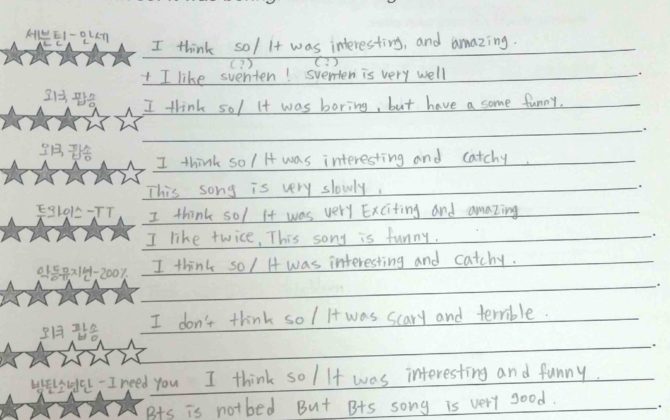 세븐틴-만세
I think so/ It was interesting, and amazing.
(?) (?)
+ I like sventen! Sventen is very well.
외국 팝송
I think so/ It was boring, but have a some funny.
외국 팝송
I think so/ It was interesting and catchy.
This song is very slowly.
트와이스-TT
I think so/ It was very Exciting and amazing
I like twice, This song is funny.
악동뮤지션-200%
I think so/ It was interesting and catchy.
외국 팝송
I don't think so/ It was scary and terrible.
방탄소년단-I need you I think so/ It was interesting and funny.
Bts is notbed But Bts song is very good.